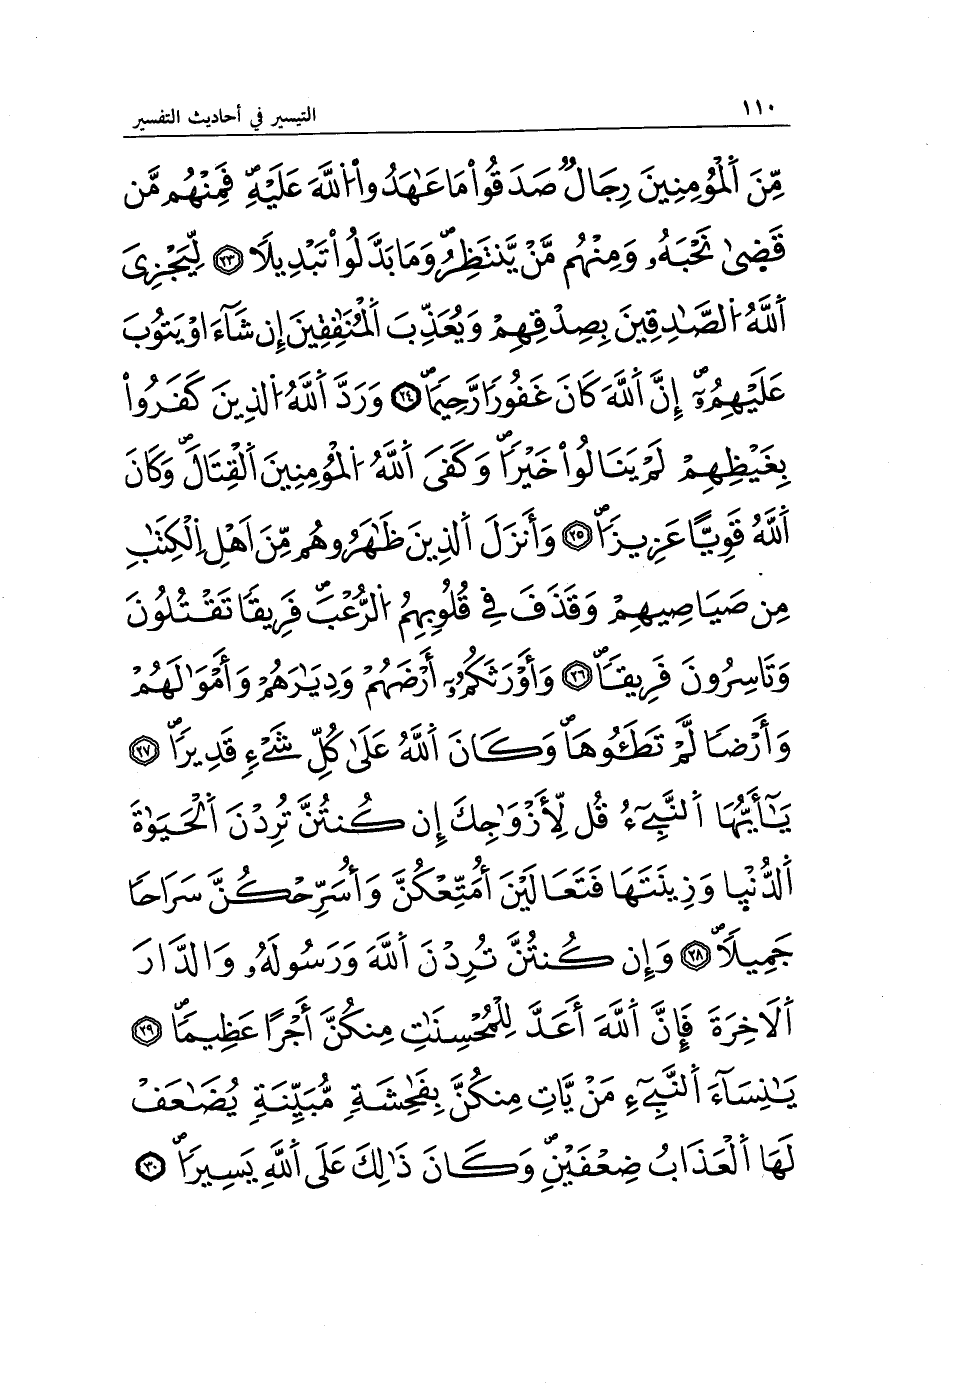 ١١٠
التيسير في أحاديث التفسير
مِّنَ اَ۬لْمُؤْمِنِينَ رِجَالٞ صَدَقُواْ مَا عَٰهَدُواْ اُ۬للَّهَ عَلَيْهِۖ فَمِنْهُم مَّن
قَضَىٰ نَحْبَهُۥ وَمِنْهُم مَّنْ يَّنتَظِرُۖ وَمَا بَدَّلُواْ تَبْدِيلًا ٢٣ لِّيَجْزِىَ
اَ۬للَّهُ اُ۬لصَّٰدِقِينَ بِصِدْقِهِمْ وَيُعَذِّبَ اَ۬لْمُنَٰفِقِينَ إِن شَآءَ اوْ يَتُوبَ
عَلَيْهِمُۥٓۖ إِنَّ اَ۬للَّهَ كَانَ غَفُورًا رَّحِيمًاۖ ٢٤ وَرَدَّ اَ۬للَّهُ اُ۬لذِينَ كَفَرُواْ
بِغَيْظِهِمْ لَمْ يَنَالُواْ خَيْرًاۖ وَكَفَى اَ۬للَّهُ اُ۬لْمُؤْمِنِينَ اَ۬لْقِتَالَۖ وَكَانَ
اَ۬للَّهُ قَوِيًّا عَزِيزًاۖ ٢٥ وَأَنزَلَ اَ۬لذِينَ ظَٰهَرُوهُم مِّنَ اَهْلِ اِ۬لْكِتَٰبِ
مِن صَيَاصِيهِمْ وَقَذَفَ فِي قُلُوبِهِمُ اُ۬لرُّعْبَۖ فَرِيقًا تَقْتُلُونَ
وَتَاسِرُونَ فَرِيقًاۖ ٢٦ وَأَوْرَثَكُمُۥٓ أَرْضَهُمْ وَدِيَٰرَهُمْ وَأَمْوَٰلَهُمْ
وَأَرْضًا لَّمْ تَطَـُٔوهَاۖ وَكَانَ اَ۬للَّهُ عَلَىٰ كُلِّ شَےْءٖ قَدِيرًاۖ ٢٧
يَٰٓأَيُّهَا اَ۬لنَّبِيٓءُ قُل لِّأَزْوَٰجِكَ إِن كُنتُنَّ تُرِدْنَ اَ۬لْحَيَوٰةَ
اَ۬لدُّنْيٜا وَزِينَتَهَا فَتَعَالَيْنَ أُمَتِّعْكُنَّ وَأُسَرِّحْكُنَّ سَرَاحًا
جَمِيلًاۖ ٢٨ وَإِن كُنتُنَّ تُرِدْنَ اَ۬للَّهَ وَرَسُولَهُۥ وَالدَّارَ
اَ۬لَاخِرَةَ فَإِنَّ اَ۬للَّهَ أَعَدَّ لِلْمُحْسِنَٰتِ مِنكُنَّ أَجْرًا عَظِيمًاۖ ٢٩
يَٰنِسَآءَ اَ۬لنَّبِيٓءِ مَنْ يَّاتِ مِنكُنَّ بِفَٰحِشَةٖ مُّبَيِّنَةٖ يُضَٰعَفْ
لَهَا اَ۬لْعَذَابُ ضِعْفَيْنِۖ وَكَانَ ذَٰلِكَ عَلَى اَ۬للَّهِ يَسِيرًاۖ ٣٠